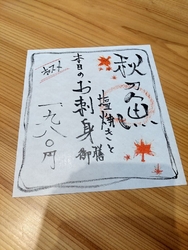 秋刀魚
塩焼きと
本日のお刺身御膳
一九八〇円